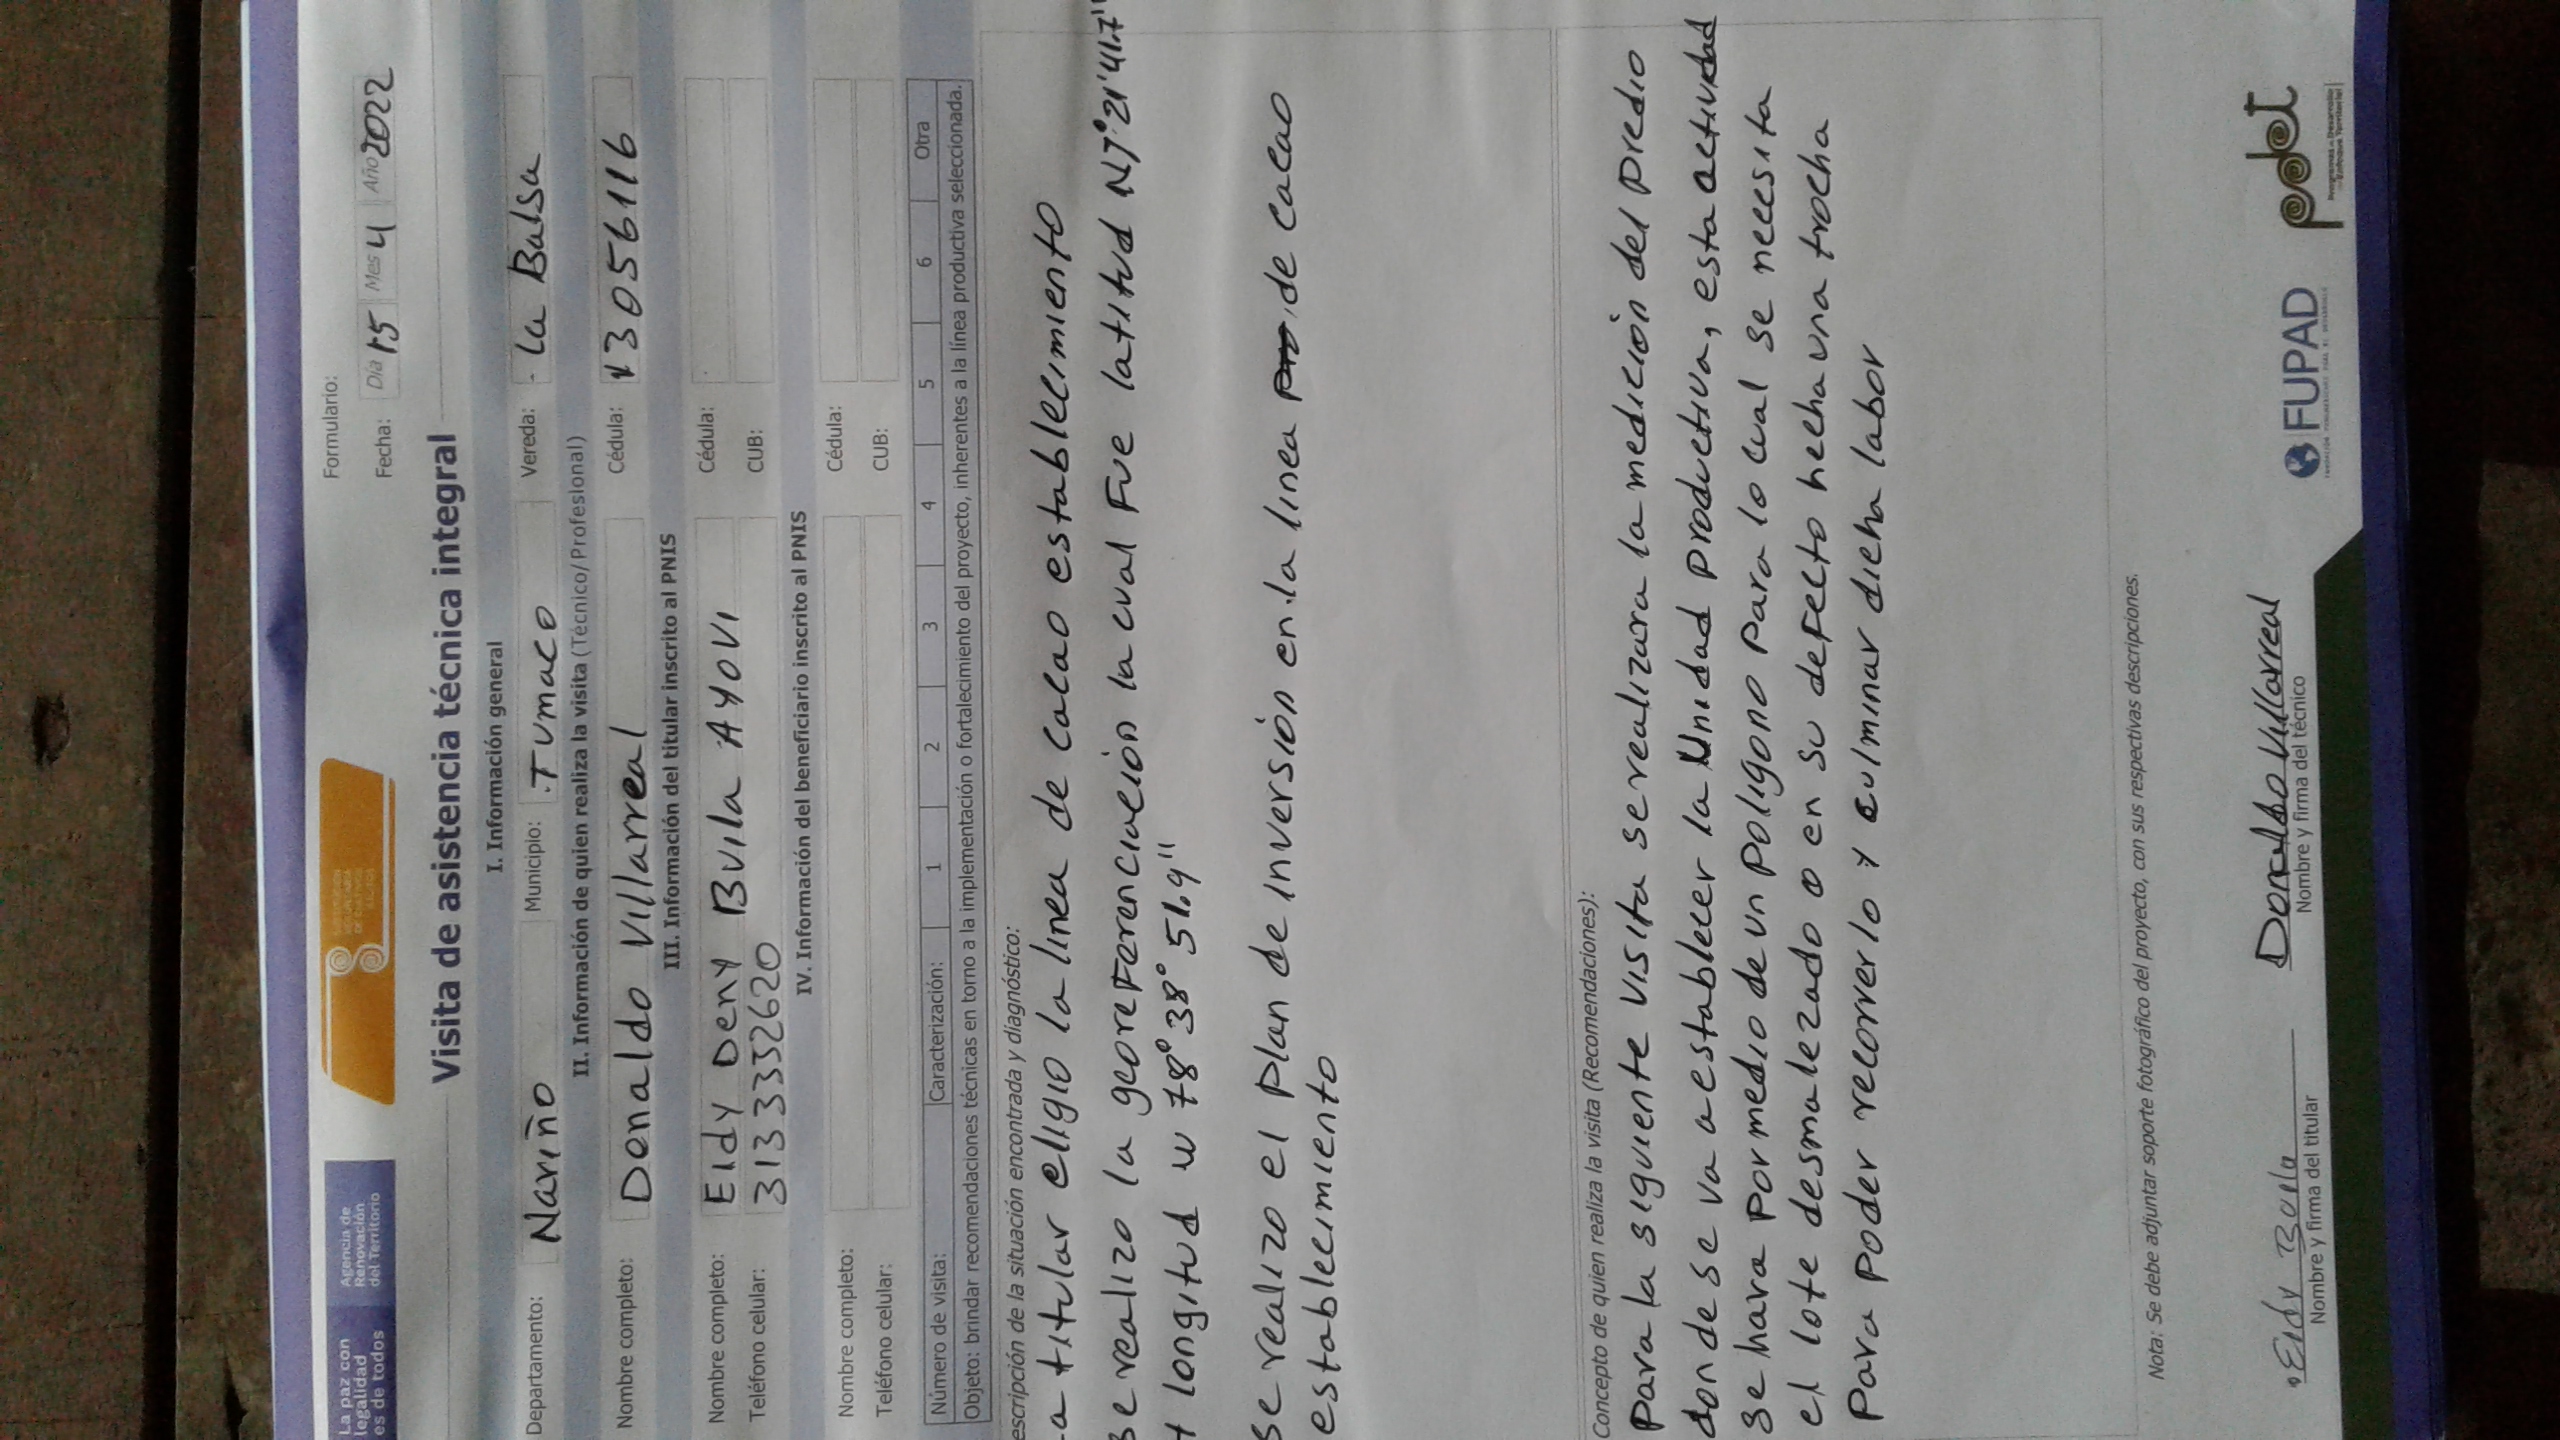 La paz con
legalidad
es de todos
Agencia de
Renovación
del Territorio
Formulario:
Fecha: Día 15 Mes 4 Año 2022
Visita de asistencia técnica integral
I. Información general
Departamento: Nariño Municipio: .TUMACO Vereda: . La Balsa
II. Información de quien realiza la visita (Técnico/Profesional)
Nombre completo: Donaldo Villarreal Cédula: 13056116
III. Información del titular inscrito al PNIS
Nombre completo: Eidy Deny Buila AYOVI Cédula:
Teléfono celular: 3133332620 CUB:
IV. Información del beneficiario inscrito al PNIS
Nombre completo: Cédula:
Teléfono celular: CUB:
Número de visita: Caracterización: 1 2 3 4 5 6 Otra
Objeto: brindar recomendaciones técnicas en torno a la implementación o fortalecimiento del proyecto, inherentes a la línea productiva seleccionada.
escripción de la situación encontrada y diagnóstico:
La titular eligio la linea de cacao establecimiento
se realizo la georeferenciación la cual fue latitud N 1°21'41.7"
y longitud w 78° 38° 51.9"
se realizo el plan de inversión en la linea de cacao
establecimiento
Concepto de quien realiza la visita (Recomendaciones):
Para la siguiente visita se realizara la medición del predio
donde se va a establecer la Unidad productiva, esta actividad
se hara por medio de un poligono para lo cual se necesita
el lote desmalezado o en su defecto hecha una trocha
para poder recorrerlo y culminar dicha labor
Nota: Se debe adjuntar soporte fotográfico del proyecto, con sus respectivas descripciones.
Eidy Buila
Nombre y firma del titular
Donaldo Villarreal
Nombre y firma del técnico
FUPAD
pdet
Programas de Desarrollo
con Enfoque Territorial